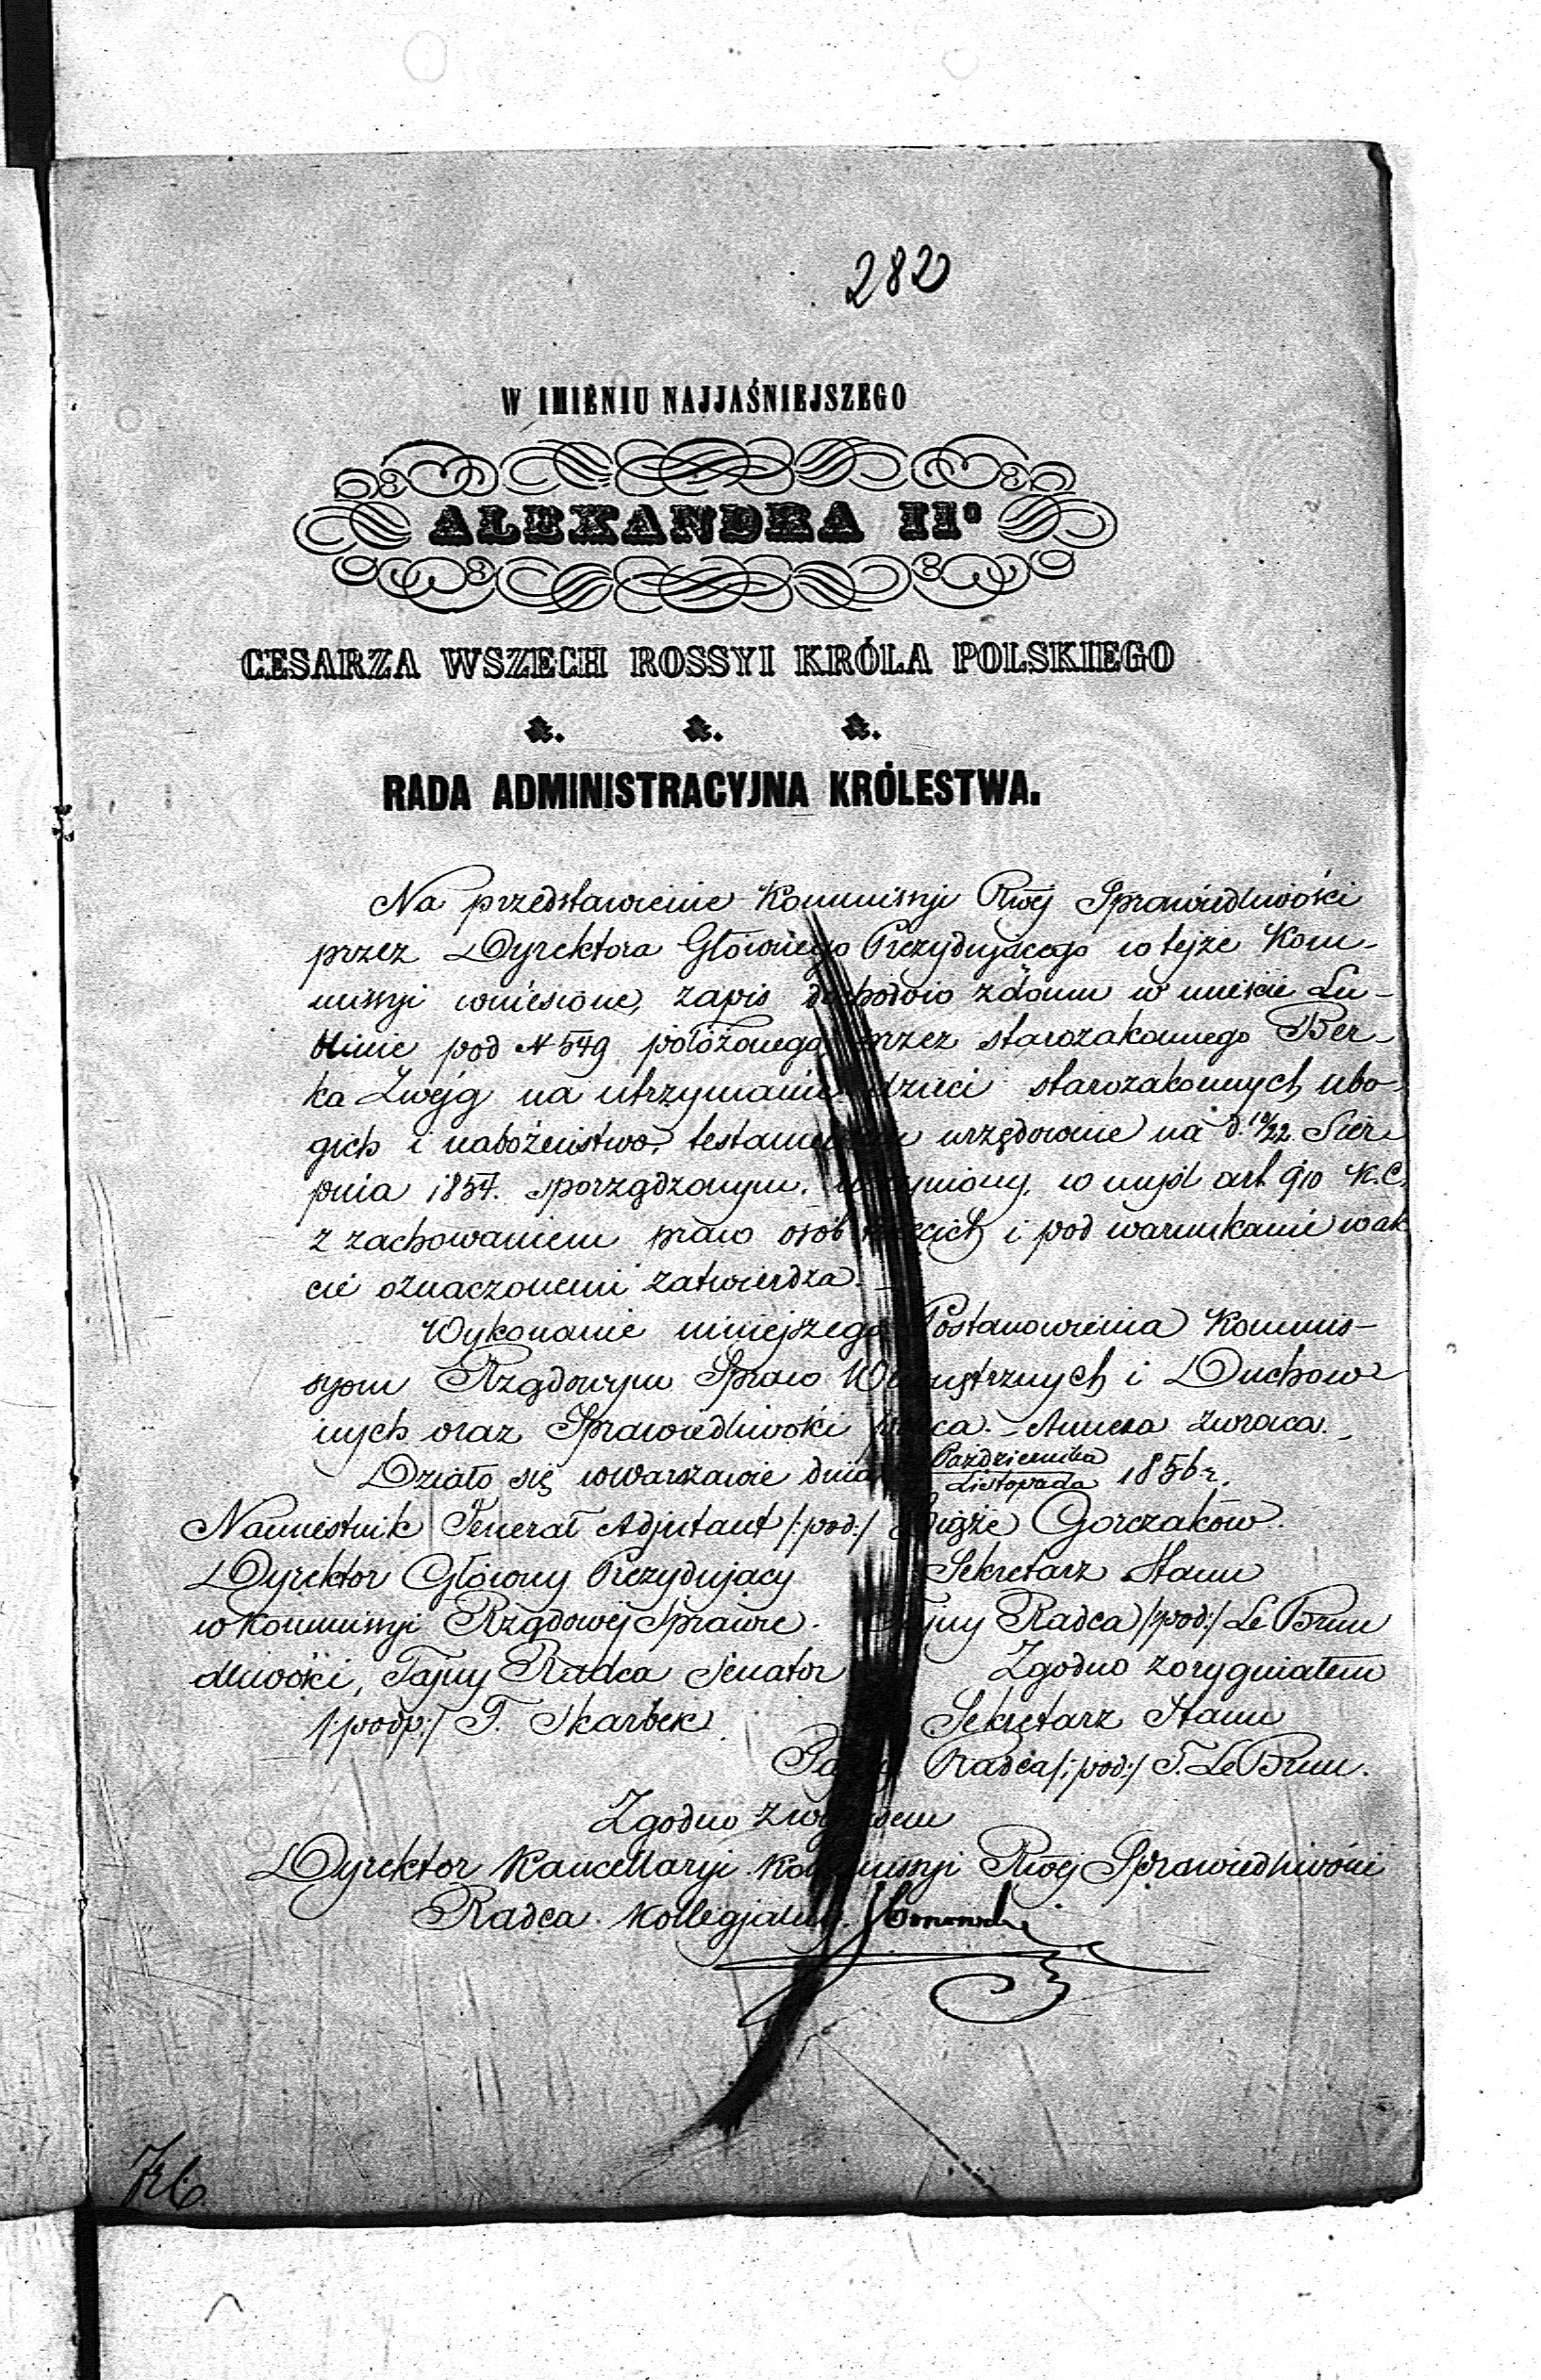 282
W IMIENIU NAJJAŚNIEJSZEGO
ALEXANDRA IIº
CESARZA WSZECH ROSSYI KRÓLA POLSKIEGO
&. &. &.
RADA ADMINISTRACYJNA KRÓLESTWA.
Na przedstawienie Kommissyi Rwéj Sprawiedliwości
przez Dyrektora Głównego Prezydującego w tejże Kom-
missyi wniesione, zapis z domu w mieście Lu-
blinie pod N 549 położonego przez starozakonnego Ber-
ka Zwejg na utrzymanie dzieci starozakonnych ubo-
gich i nabożeństwo, testamentem urzędownie na d. 10/22 Sier-
pnia 1854. sporządzonym, uczyniony, w myśl art. 910 K.C.
z zachowaniem praw osób trzecich i pod warunkami w ak
cie oznaczonemi zatwierdza.
Wykonanie niniejszego Postanowienia Kommis-
syom Rządowym Spraw Wewnętrznych i Duchow-
nych oraz Sprawiedliwości zwraca.
Działo się w Warszawie dnia Października/Listopada 1856 r.
Namiestnik Jenerał Adjutant /:pod:/ Xiąże Gorczaków.
Dyrektor Główny Prezydujący Sekretarz Stanu
w Kommissyi Rządowéj Sprawie- Tajny Radca /:pod:/ Le Brun
dliwości, Tajny Radca Senator Zgodno z oryginałem
/:podp:/ F. Skarbek Sekretarz Stanu
Tajny Radca /:pod:/ T. Le Brun.
Zgodno z wypisem
Dyrektor Kancellaryi Kommissyi Rwéj Sprawiedliwości
Radca Kollegjalny.